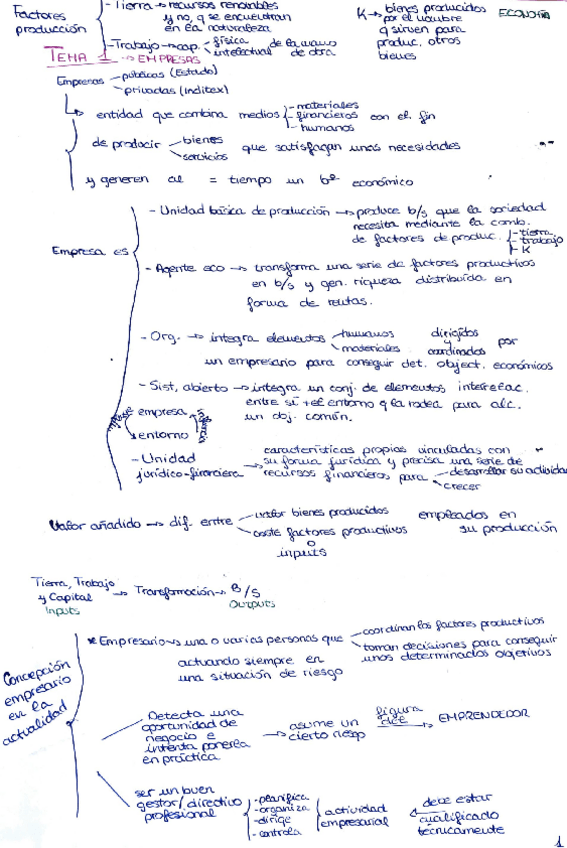 Factores producción
- Tierra → recursos renovables y no, q se encuentran en la naturaleza
- Trabajo → cap. física intelectual de la mano de obra
K → bienes producidos por el hombre q sirven para produc. otros bienes
ECONOMÍA
TEMA 1 → EMPRESAS
Empresas
públicas (Estado)
privadas (Inditex)
entidad que combina medios
- materiales
- financieros
- humanos
con el fin
de producir
bienes
servicios
que satisfagan unas necesidades
y generen al = tiempo un bº económico
Empresa es
- Unidad básica de producción → produce b/s que la sociedad
necesita mediante la comb.
de factores de produc.
- tierra
- trabajo
- K
- Agente eco → transforma una serie de factores productivos
en b/s y gen. riqueza distribuida en
forma de rentas.
- Org. → integra elementos
humanos
materiales
dirigidos
coordinados
por
un empresario para conseguir det. object. económicos
- Sist. abierto → integra un conj. de elementos interrelac.
entre sí + el entorno q la rodea para alc.
un obj. común.
empresa
entorno
- Unidad
jurídico-financiera
→ características propias vinculadas con
su forma jurídica y precisa una serie de
recursos financieros para
desarrollar su actividad
crecer
Valor añadido → dif. entre
valor bienes producidos
coste factores productivos
o
inputs
empleados en
su producción
Tierra, Trabajo
y Capital
Inputs
→ Transformación → B/S
Outputs
Concepción
empresario
en la
actualidad
* Empresario → una o varias personas que
coordinan los factores productivos
toman decisiones para conseguir
unos determinados objetivos
actuando siempre en
una situación de riesgo
Detecta una
oportunidad de
negocio e
intenta ponerla
en práctica
→ asume un
cierto riesgo
figura
del
→ EMPRENDEDOR
ser un buen
gestor/directivo
profesional
- planifica
- organiza
- dirige
- controla
actividad
empresarial
debe estar
cualificado
técnicamente
1